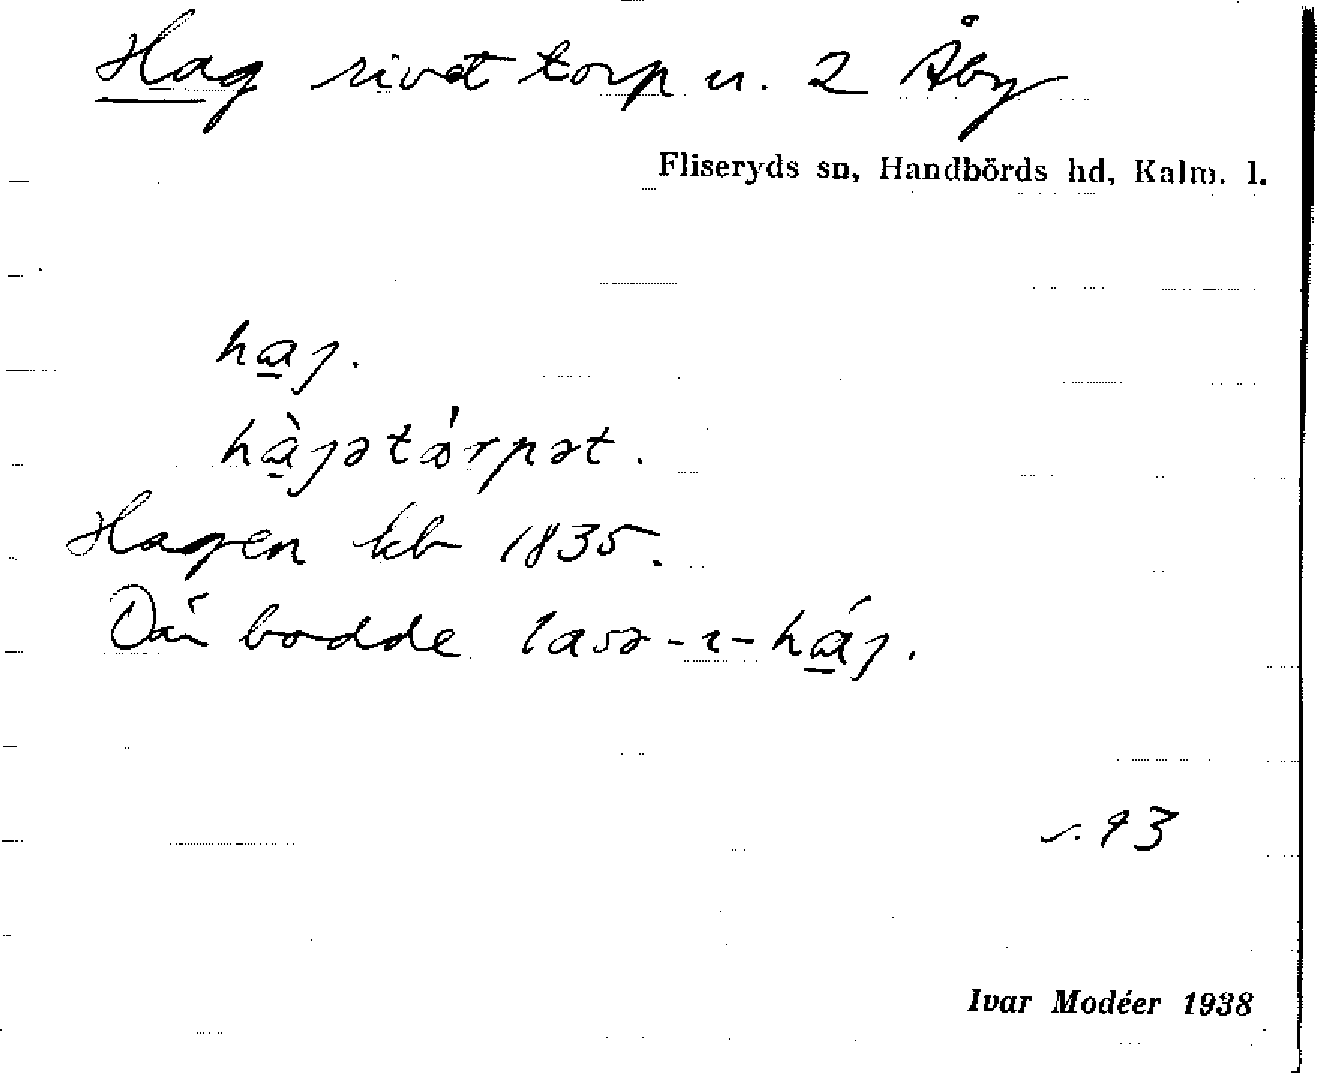 Hag rivet torp u. 2 Åby
Fliseryds sn, Handbörds hd, Kalm. l.
ha̲ȷ.
hà̲ȷətárpət.
Hagen kb 1835.
Där bodde lasə-ı-há̲ȷ.
s. 93
Ivar Modéer 1938